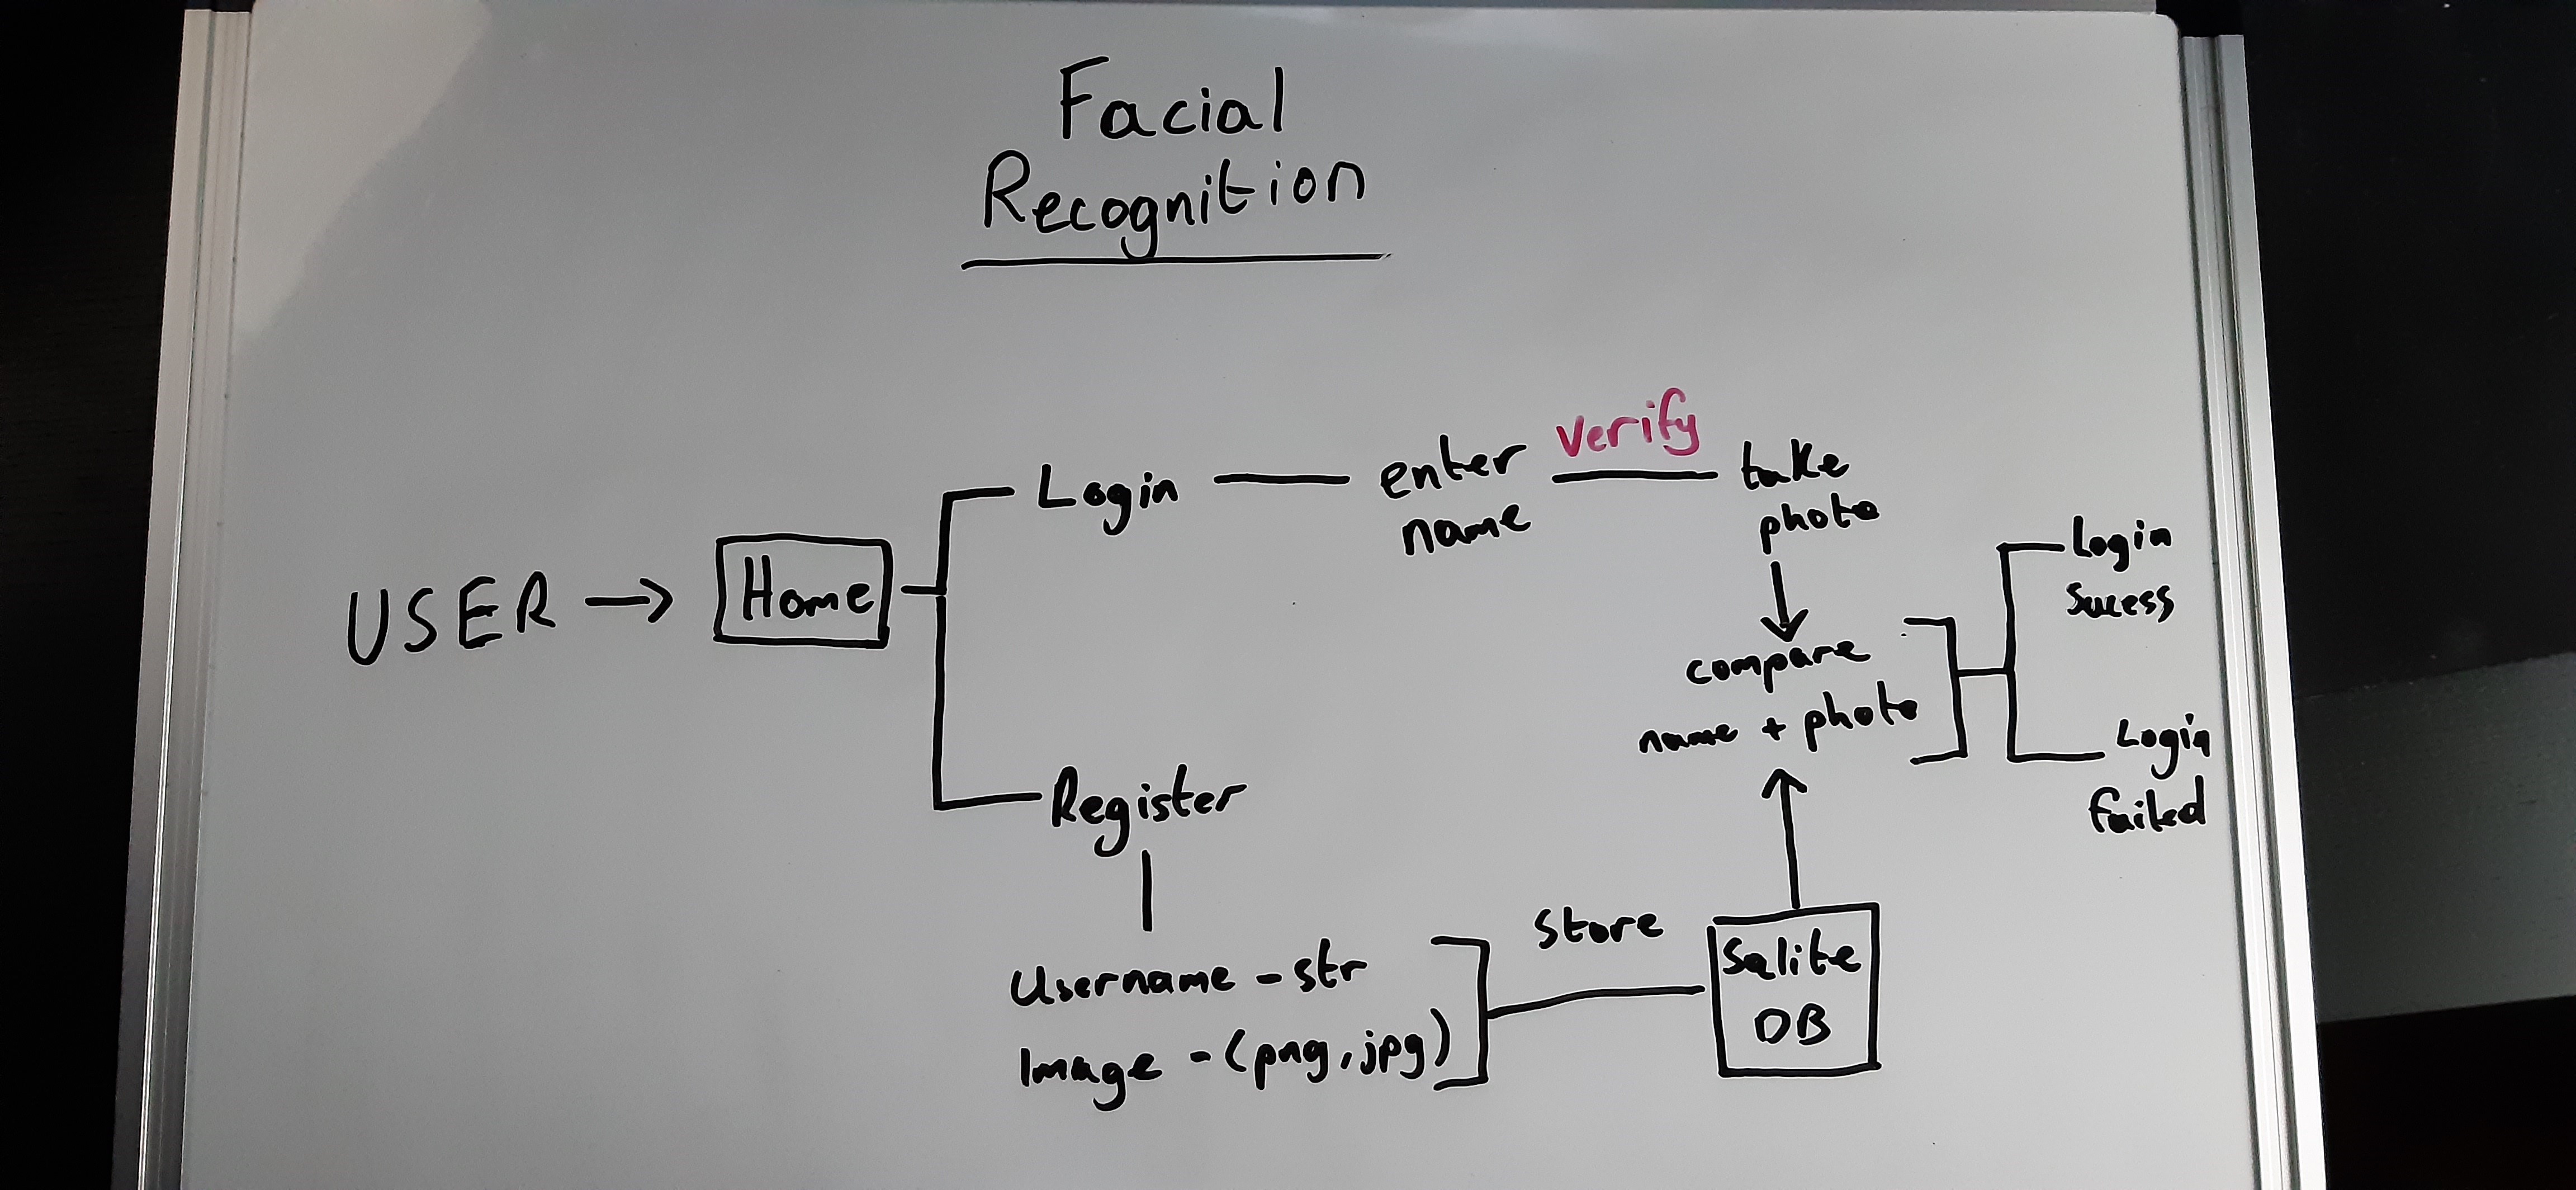 Facial
Recognition
USER → Home
Login
enter
name
verify
take
photo
compare
name + photo
Login
Sucess
Login
failed
Register
Username - str
Image - (png, jpg)
Store
Sqlite
DB